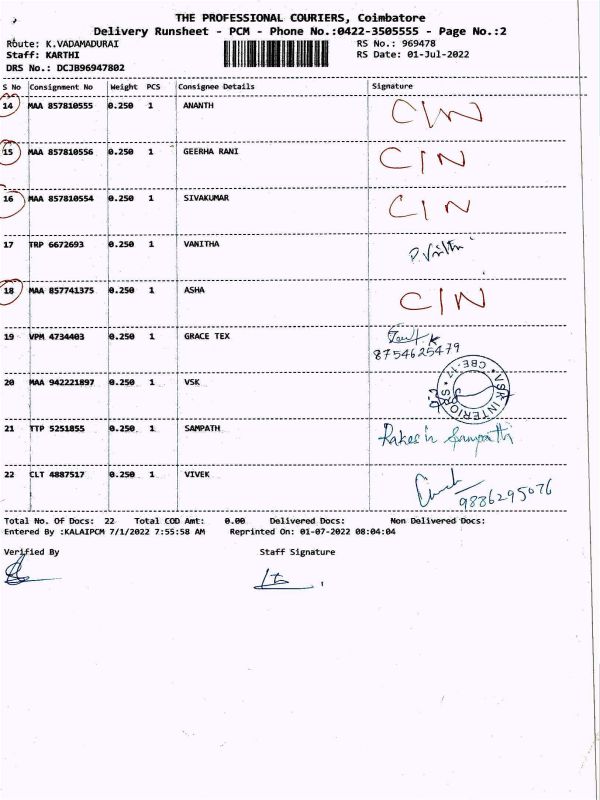 THE PROFESSIONAL COURIERS, Coimbatore
Delivery Runsheet - PCM - Phone No.:0422-3505555 - Page No.:2
Route: K.VADAMADURAI RS No.: 969478
Staff: KARTHI RS Date: 01-Jul-2022
DRS No.: DCJB96947802
S No Consignment No Weight PCS Consignee Details Signature
14 MAA 857810555 0.250 1 ANANTH CIN
15 MAA 857810556 0.250 1 GEERHA RANI CIN
16 MAA 857810554 0.250 1 SIVAKUMAR CIN
17 TRP 6672693 0.250 1 VANITHA
18 MAA 857741375 0.250 1 ASHA CIN
19 VPM 4734403 0.250 1 GRACE TEX
8754625479
20 MAA 942221897 0.250 1 VSK VSK INTERIORS CBE-17
21 TTP 5251855 0.250 1 SAMPATH Rakesh Sampath
22 CLT 4887517 0.250 1 VIVEK
9886295076
Total No. Of Docs: 22 Total COD Amt: 0.00 Delivered Docs: Non Delivered Docs:
Entered By :KALAIPCM 7/1/2022 7:55:58 AM Reprinted On: 01-07-2022 08:04:04
Verified By Staff Signature